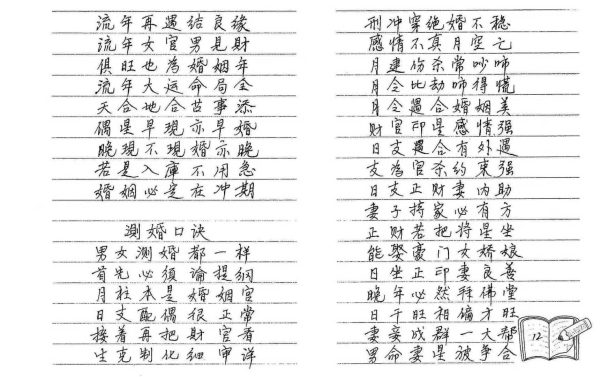 流年再遇结良缘
流年女官男見財
俱旺也為婚姻年
流年大运命局全
天合地合吉事添
偶星早現亦早婚
晚現不現婚亦晚
若是入庫不用急
婚姻必定在冲期
測婚口诀
男女測婚都一样
首先必須論提纲
月柱本是婚姻宫
日支配偶很正常
接着再把財官看
生克制化细审详
刑冲穿绝婚不稳
感情不真月空亡
月建伤杀常吵啼
月令比劫啼得慌
月令遇合婚姻美
財官印星感情强
日支遇合有外遇
支為官杀约束强
日支正財妻内助
妻子持家必有方
正財若把将星坐
能娶豪门女娇娘
日坐正印妻良善
晚年必然拜佛堂
日干旺相偏才旺
妻妾成群一大帮
男命妻星被争合
12